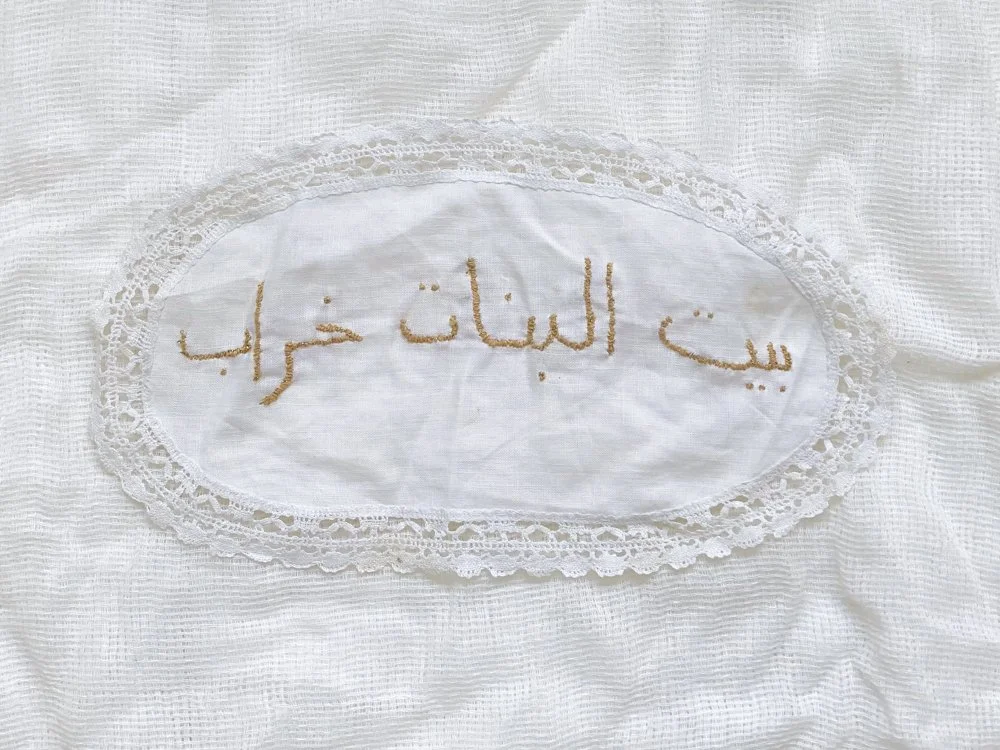 بيت البنات خراب